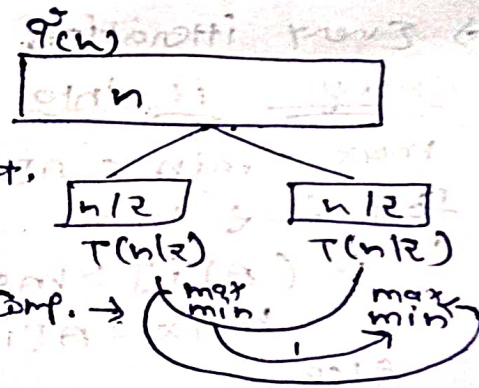 T(n)
n
n/2 n/2
T(n/2) T(n/2)
comp. → max max
min min
1